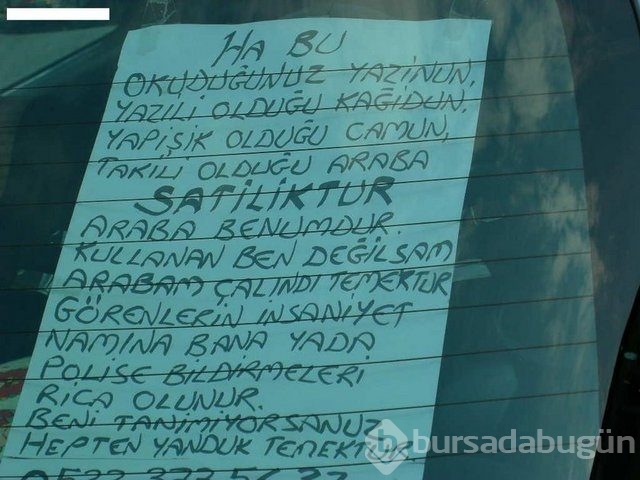 HA BU
OKUDUĞUNUZ YAZİNUN,
YAZILI OLDUĞU KAĞIDUN,
YAPIŞIK OLDUĞU CAMUN,
TAKILI OLDUĞU ARABA
SATILIKTUR
ARABA BENUMDUR.
KULLANAN BEN DEĞİLSAM
ARABAM ÇALINDI TEMEKTUR
GÖRENLERİN İNSANİYET
NAMINA BANA YADA
POLİSE BİLDİRMELERİ
RİCA OLUNUR.
BENİ TANIMIYORSANUZ
HEPTEN YANDUK TEMEKTUR.
b bursadabugün